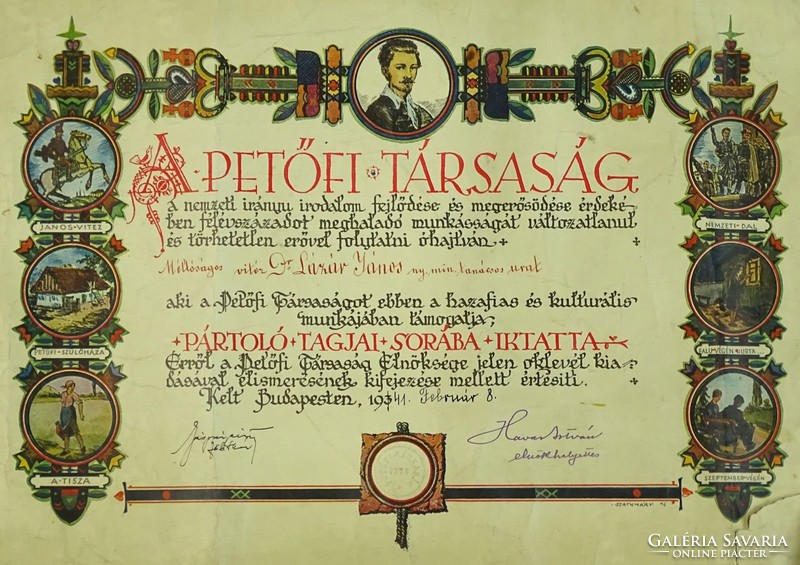 A PETŐFI TÁRSASÁG
a nemzeti irányu irodalom fejlődése és megerősödése érdeké-
ben félévszázadot meghaladó munkásságát változatlanul
és törhetetlen erővel folytatni óhajtván
Méltóságos vitéz Dr Lázár János ny. min. tanácsos urat
aki a Petőfi Társaságot ebben a hazafias és kulturális
munkájában támogatja,
PÁRTOLÓ TAGJAI SORÁBA IKTATTA
Erről a Petőfi Társaság Elnöksége jelen oklevél kia-
dásával elismerésének kifejezése mellett értesíti.
Kelt Budapesten, 1941. Február 8.
Havas István
elnökhelyettes
JÁNOS-VITÉZ
PETŐFI-SZÜLŐHÁZA
A-TISZA
NEMZETI-DAL
FALU-VÉGÉN-KURTA...
SZEPTEMBER-VÉGÉN
GALÉRIA SAVARIA
ONLINE PIACTÉR